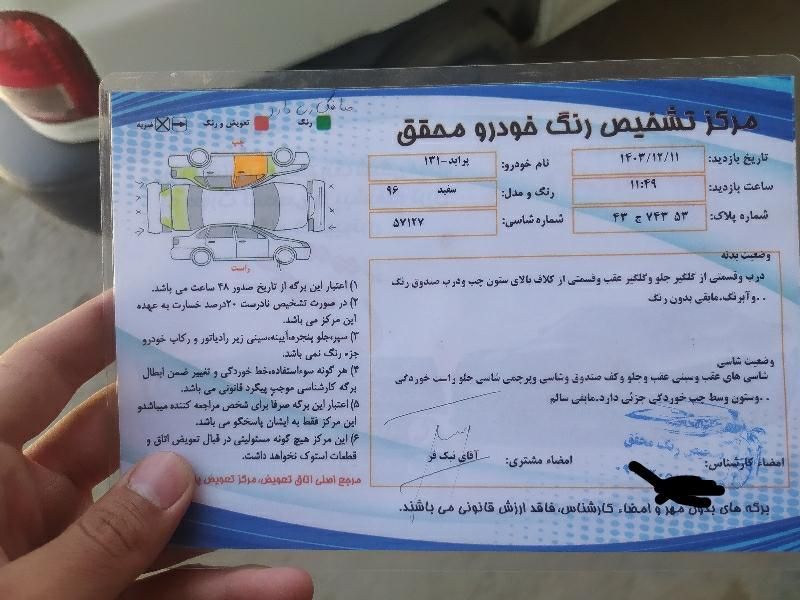 مرکز تشخیص رنگ خودرو محقق
صافکاری دارد
رنگ
تعویض و رنگ
ضربه
تاریخ بازدید: ۱۴۰۳/۱۲/۱۱
نام خودرو: پراید-۱۳۱
ساعت بازدید: ۱۱:۴۹
رنگ و مدل: سفید ۹۶
شماره پلاک: ۵۳ ۷۴۳ ج ۴۳
شماره شاسی: ۵۷۱۲۷
چپ
راست
وضعیت بدنه
درب وقسمتی از گلگیر جلو وگلگیر عقب وقسمتی از کلاف بالای ستون چپ ودرب صندوق رنگ
. .وآبرنگ.مابقی بدون رنگ
وضعیت شاسی
شاسی های عقب وسینی عقب وجلو وکف صندوق وشاسی وپرچمی شاسی جلو راست خوردگی
. .وستون وسط چپ خوردگی جزئی دارد.مابقی سالم
امضاء کارشناس:
امضاء مشتری:
آقای نیک فر
۱) اعتبار این برگه از تاریخ صدور ۴۸ ساعت می باشد.
۲) در صورت تشخیص نادرست ۲۰درصد خسارت به عهده
این مرکز می باشد.
۳) سپر،جلو پنجره،آیینه،سینی زیر رادیاتور و رکاب خودرو
جزء رنگ نمی باشد.
۴) هر گونه سوءاستفاده،خط خوردگی و تغییر ضمن ابطال
برگه کارشناسی موجب پیگرد قانونی می باشد.
۵) اعتبار این برگه صرفا برای شخص مراجعه کننده میباشدو
این مرکز فقط به ایشان پاسخگو می باشد.
۶) این مرکز هیچ گونه مسئولیتی در قبال تعویض اتاق و
قطعات استوک نخواهد داشت.
مرجع اصلی اتاق تعویض، مرکز تعویض
برگه های بدون مهر و امضاء کارشناس، فاقد ارزش قانونی می باشند.